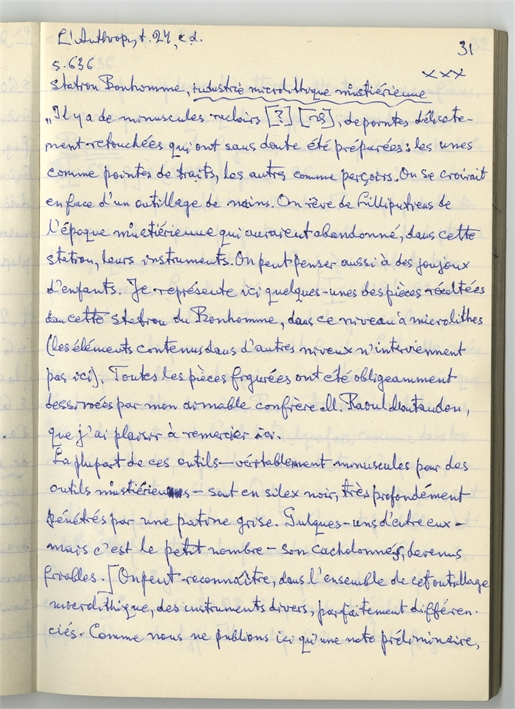 L'Anthrop, t. 24, c.d.
31
s. 636
xxx
Station Bonhomme, industrie microlithique mustiérienne
"Il y a de minuscules racloirs [?] [rs], de pointes délicate-
ment retouchées qui ont sans doute été préparées: les unes
comme pointes de traits, les autres comme perçoirs. On se croirait
en face d'un outillage de nains. On rêve de Lilliputiens de
l'époque mustiérienne qui auraient abandonné, dans cette
station, leurs instruments. On peut penser aussi à des joujoux
d'enfants. Je représente ici quelques-unes des pièces récoltées
dans cette station du Bonhomme, dans ce niveau à microlithes
(les éléments contenus dans d'autres niveux n'interviennent
pas ici). Toutes les pièces figurées ont été obligeamment
dessinées par mon aimable confrère M. Raoul Montandon,
que j'ai plaisir à remercier ici.
La plupart de ces outils – véritablement minuscules pour des
outils mustiériens – sont en silex noir, très profondément
pénétrés par une patine grise. Qulques-uns d'entre eux –
mais c'est le petit nombre – son cachdonnés, devenus
friables. [On peut reconnoître, dans l'ensemble de cet outillage
microlithique, des instruments divers, parfaitement différen-
ciés. Comme nous ne publions ici qu'une note préliminaire,